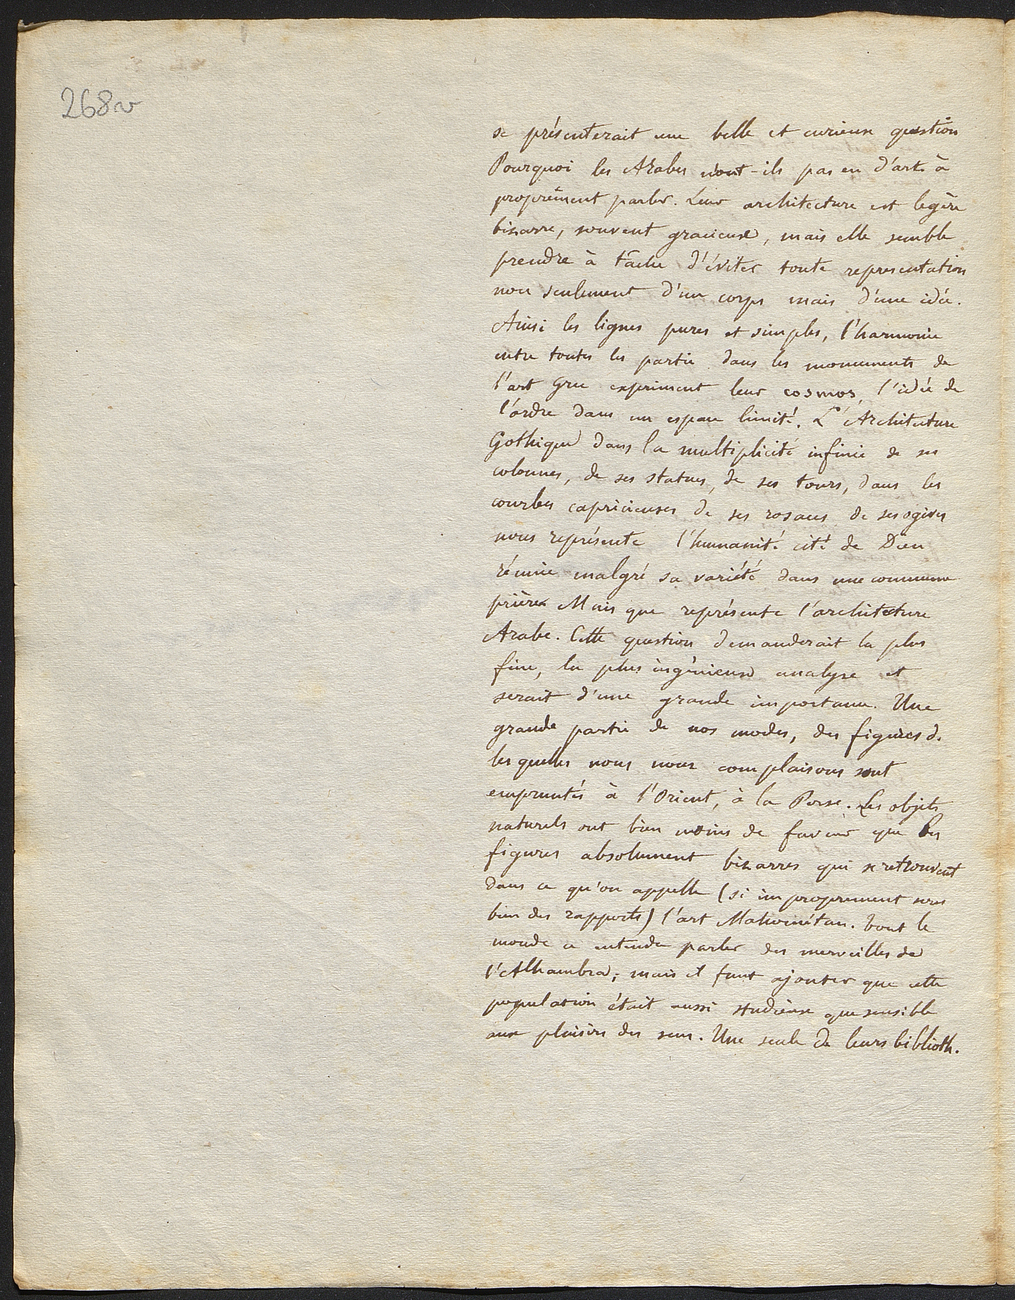 268v
se présenterait une belle et curieuse question
Pourquoi les Arabes n'ont-ils pas eu d'arts à
proprement parler. Leur architecture est legère
bizarre, souvent gracieuse, mais elle semble
prendre à tâche d'éviter toute representation
non seulement d'un corps mais d'une idée.
Ainsi les lignes pures et simples, l'harmonie
entre toutes les partie dans les monuments de
l'art Grec expriment leur cosmos, l'idée de
l'ordre dans un espace limité. L'Architecture
Gothique dans la multiplicité infinie de ses
colonnes, de ses statues, de ses tours, dans les
courbes capricieuses de ses rosaces de ses ogives
nous représente l'humanité cité de Dieu
réunie malgré sa variété dans une commune
prière Mais que représente l'architecture
Arabe. Cette question demanderait la plus
fine, la plus ingénieuse analyse et
serait d'une grande importance. Une
grande partie de nos modes, des figures d.
lesquelles nous nous complaisons sont
empruntés à l'Orient, à la Perse. Les objets
naturels ont bien moins de faveur que les
figures absolument bizarres qui se retrouvent
dans ce qu'on appelle (si improprement sous
bien des rapports) l'art Mahométan. tout le
monde a entendu parler des merveilles de
l'Alhambra; mais il faut ajouter que cette
population était aussi studieuse que sensible
aux plaisirs des sens. Une seule de leurs biblioth.